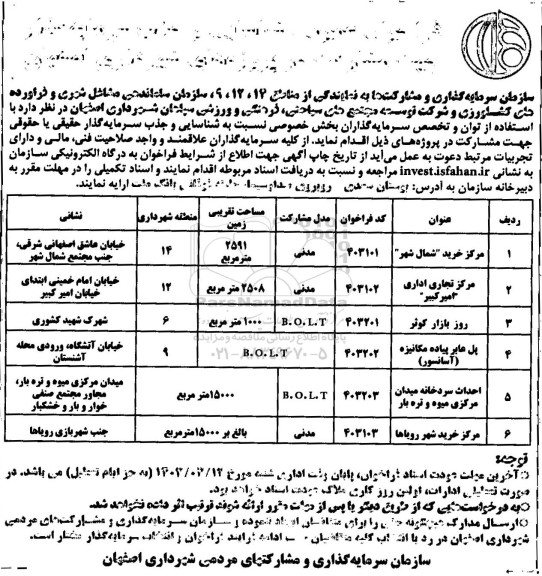 سازمان سرمایه‌گذاری و مشارکت‌ها به نمایندگی از مناطق ۱۴، ۱۲، ۹، سازمان ساماندهی مشاغل شهری و فرآورده
های کشاورزی و شرکت توسعه مجتمع های سیاحتی، فرهنگی و ورزشی سپاهان شهرداری اصفهان در نظر دارد با
استفاده از توان و تخصص سرمایه‌گذاران بخش خصوصی نسبت به شناسایی و جذب سرمایه‌گذار حقیقی یا حقوقی
جهت مشارکت در پروژه‌های ذیل اقدام نماید. از کلیه سرمایه‌گذاران علاقمند و واجد صلاحیت فنی، مالی و دارای
تجربیات مرتبط دعوت به عمل می‌آید از تاریخ چاپ آگهی جهت اطلاع از شرایط فراخوان به درگاه الکترونیکی سازمان
به نشانی invest.isfahan.ir مراجعه و نسبت به دریافت اسناد مربوطه اقدام نمایند و اسناد تکمیلی را در مهلت مقرر به
دبیرخانه سازمان به آدرس: بوستان سعدی - روبروی ارایه نمایند.
ردیف عنوان کد فراخوان مدل مشارکت مساحت تقریبی زمین منطقه شهرداری نشانی
۱ مرکز خرید "شمال شهر" ۴۰۳۱۰۱ مدنی ۲۵۹۱ مترمربع ۱۴ خیابان عاشق اصفهانی شرقی، جنب مجتمع شمال شهر
۲ مرکز تجاری اداری "امیرکبیر" ۴۰۳۱۰۲ مدنی ۲۵۰۸ متر مربع ۱۲ خیابان امام خمینی ابتدای خیابان امیر کبیر
۳ روز بازار کوثر ۴۰۳۲۰۱ B.O.L.T ۱۰۰۰ متر مربع ۶ شهرک شهید کشوری
۴ پل عابر پیاده مکانیزه (آسانسور) ۴۰۳۲۰۲ B.O.L.T ۹ خیابان آتشگاه، ورودی محله آشنستان
۵ احداث سردخانه میدان مرکزی میوه و تره بار ۴۰۳۲۰۳ B.O.L.T ۱۵۰۰۰متر مربع میدان مرکزی میوه و تره بار، مجاور مجتمع صنفی خوار و بار و خشکبار
۶ مرکز خرید شهر رویاها ۴۰۳۱۰۳ مدنی بالغ بر ۱۵۰۰۰مترمربع جنب شهربازی رویاها
توجه:
آخرین مهلت عودت اسناد فراخوان، پایان وقت اداری شنبه مورخ ۱۴۰۳/۰۳/۱۲ (به جز ایام تعطیل) می باشد. در
صورت تعطیلی ادارات، اولین روز کاری ملاک عودت اسناد خواهد بود.
به درخواست‌هایی که از طریق دیگر یا پس از مهلت مقرر ارائه شوند ترتیب اثر داده نخواهد شد.
ارسال مدارک هیچگونه حقی را برای متقاضیان ایجاد ننموده و سازمان سرمایه‌گذاری و مشارکت‌های مردمی
شهرداری اصفهان در رد یا انتخاب کلیه متقاضیان ادامه فرآیند فراخوان و انتخاب سرمایه‌گذار مختار است.
سازمان سرمایه‌گذاری و مشارکتهای مردمی شهرداری اصفهان